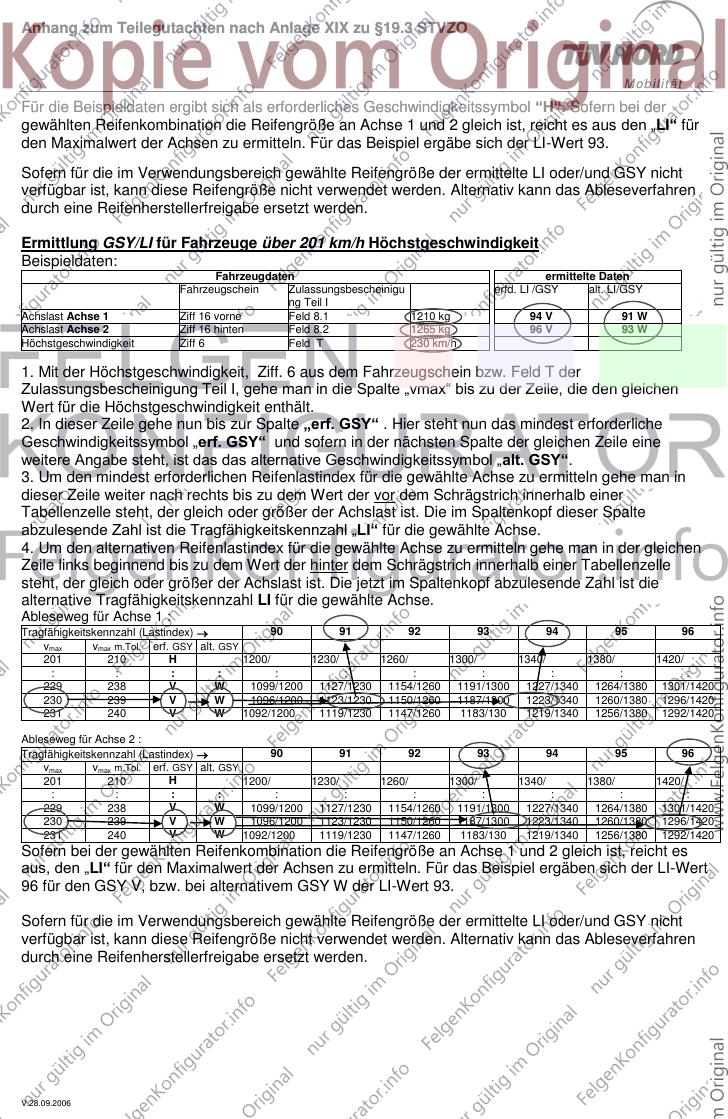 Anhang zum Teilegutachten nach Anlage XIX zu §19.3 STVZO
Kopie vom Original
TÜV NORD
Mobilität
Für die Beispieldaten ergibt sich als erforderliches Geschwindigkeitssymbol “H“. Sofern bei der
gewählten Reifenkombination die Reifengröße an Achse 1 und 2 gleich ist, reicht es aus den „LI“ für
den Maximalwert der Achsen zu ermitteln. Für das Beispiel ergäbe sich der LI-Wert 93.
Sofern für die im Verwendungsbereich gewählte Reifengröße der ermittelte LI oder/und GSY nicht
verfügbar ist, kann diese Reifengröße nicht verwendet werden. Alternativ kann das Ableseverfahren
durch eine Reifenherstellerfreigabe ersetzt werden.
Ermittlung GSY/LI für Fahrzeuge über 201 km/h Höchstgeschwindigkeit
Beispieldaten:
Fahrzeugdaten ermittelte Daten
Fahrzeugschein Zulassungsbescheinigu erfd. LI /GSY alt. LI/GSY
ng Teil I
Achslast Achse 1 Ziff 16 vorne Feld 8.1 1210 kg 94 V 91 W
Achslast Achse 2 Ziff 16 hinten Feld 8.2 1265 kg 96 V 93 W
Höchstgeschwindigkeit Ziff 6 Feld T 230 km/h
FELGEN
KONFIGURATOR
FelgenKonfigurator.info
1. Mit der Höchstgeschwindigkeit, Ziff. 6 aus dem Fahrzeugschein bzw. Feld T der
Zulassungsbescheinigung Teil I, gehe man in die Spalte „vmax“ bis zu der Zeile, die den gleichen
Wert für die Höchstgeschwindigkeit enthält.
2. In dieser Zeile gehe nun bis zur Spalte „erf. GSY“ . Hier steht nun das mindest erforderliche
Geschwindigkeitssymbol „erf. GSY“ und sofern in der nächsten Spalte der gleichen Zeile eine
weitere Angabe steht, ist das das alternative Geschwindigkeitssymbol „alt. GSY“.
3. Um den mindest erforderlichen Reifenlastindex für die gewählte Achse zu ermitteln gehe man in
dieser Zeile weiter nach rechts bis zu dem Wert der vor dem Schrägstrich innerhalb einer
Tabellenzelle steht, der gleich oder größer der Achslast ist. Die im Spaltenkopf dieser Spalte
abzulesende Zahl ist die Tragfähigkeitskennzahl „LI“ für die gewählte Achse.
4. Um den alternativen Reifenlastindex für die gewählte Achse zu ermitteln gehe man in der gleichen
Zeile links beginnend bis zu dem Wert der hinter dem Schrägstrich innerhalb einer Tabellenzelle
steht, der gleich oder größer der Achslast ist. Die jetzt im Spaltenkopf abzulesende Zahl ist die
alternative Tragfähigkeitskennzahl LI für die gewählte Achse.
Ableseweg für Achse 1
Tragfähigkeitskennzahl (Lastindex) → 90 91 92 93 94 95 96
vmax vmax m.Tol. erf. GSY alt. GSY
201 210 H 1200/ 1230/ 1260/ 1300/ 1340/ 1380/ 1420/
: : : : : : : : : : :
229 238 V W 1099/1200 1127/1230 1154/1260 1191/1300 1227/1340 1264/1380 1301/1420
230 239 V W 1096/1200 1123/1230 1150/1260 1187/1300 1223/1340 1260/1380 1296/1420
231 240 V W 1092/1200 1119/1230 1147/1260 1183/130 1219/1340 1256/1380 1292/1420
Ableseweg für Achse 2 :
Tragfähigkeitskennzahl (Lastindex) → 90 91 92 93 94 95 96
vmax vmax m.Tol. erf. GSY alt. GSY
201 210 H 1200/ 1230/ 1260/ 1300/ 1340/ 1380/ 1420/
: : : : : : : : : : :
229 238 V W 1099/1200 1127/1230 1154/1260 1191/1300 1227/1340 1264/1380 1301/1420
230 239 V W 1096/1200 1123/1230 1150/1260 1187/1300 1223/1340 1260/1380 1296/1420
231 240 V W 1092/1200 1119/1230 1147/1260 1183/130 1219/1340 1256/1380 1292/1420
Sofern bei der gewählten Reifenkombination die Reifengröße an Achse 1 und 2 gleich ist, reicht es
aus, den „LI“ für den Maximalwert der Achsen zu ermitteln. Für das Beispiel ergäben sich der LI-Wert
96 für den GSY V, bzw. bei alternativem GSY W der LI-Wert 93.
Sofern für die im Verwendungsbereich gewählte Reifengröße der ermittelte LI oder/und GSY nicht
verfügbar ist, kann diese Reifengröße nicht verwendet werden. Alternativ kann das Ableseverfahren
durch eine Reifenherstellerfreigabe ersetzt werden.
nur gültig im Original
www.FelgenKonfigurator.info
V:28.09.2006